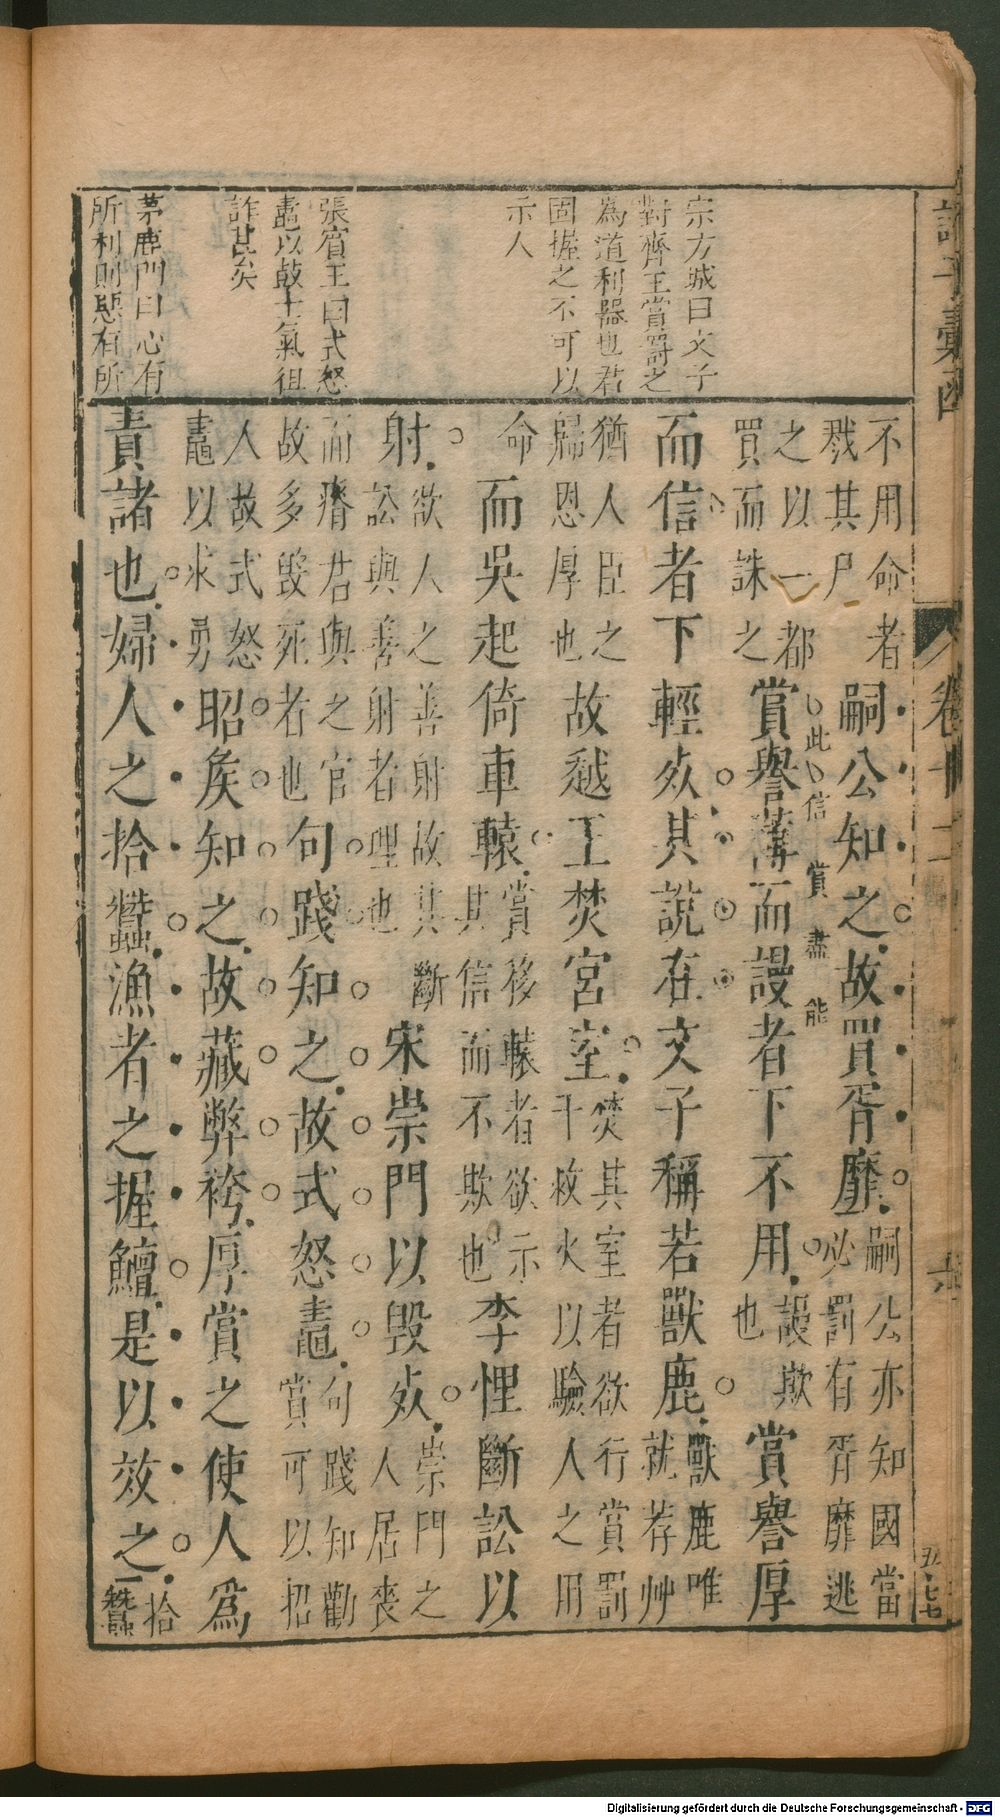 諸子彙函 卷十二 六 五七七
宗方城曰文子
對齊王賞罰之
為道利器也君
固握之不可以
示人
張賓王曰式怒
鼃以鼓士氣徂
詐甚矣
茅鹿門曰心有
所利則惡有所
不用命者戮其尸嗣公知之故買胥靡嗣公亦知國當必罰有胥靡逃
此信賞盡能
之以一都買而誅之賞譽薄而謾者下不用謾欺也賞譽厚
而信者下輕死其說在文子稱若獸鹿獸鹿唯就荐艸
猶人臣之歸恩厚也故越王焚宮室焚其室者欲行賞罰干救火以驗人之用
命而吳起倚車轅賞移轅者欲示其信而不欺也李悝斷訟以
射欲人之善射故其斷訟與善射者理也宋崇門以毀死崇門之人居喪
而瘠君與之官故多毀死者也句踐知之故式怒鼃句踐知勸賞可以招
人故式怒鼃以求勇昭矦知之故藏弊袴厚賞之使人爲
責諸也婦人之拾蠶漁者之握鱣是以效之拾蠶
Digitalisierung gefördert durch die Deutsche Forschungsgemeinschaft - DFG